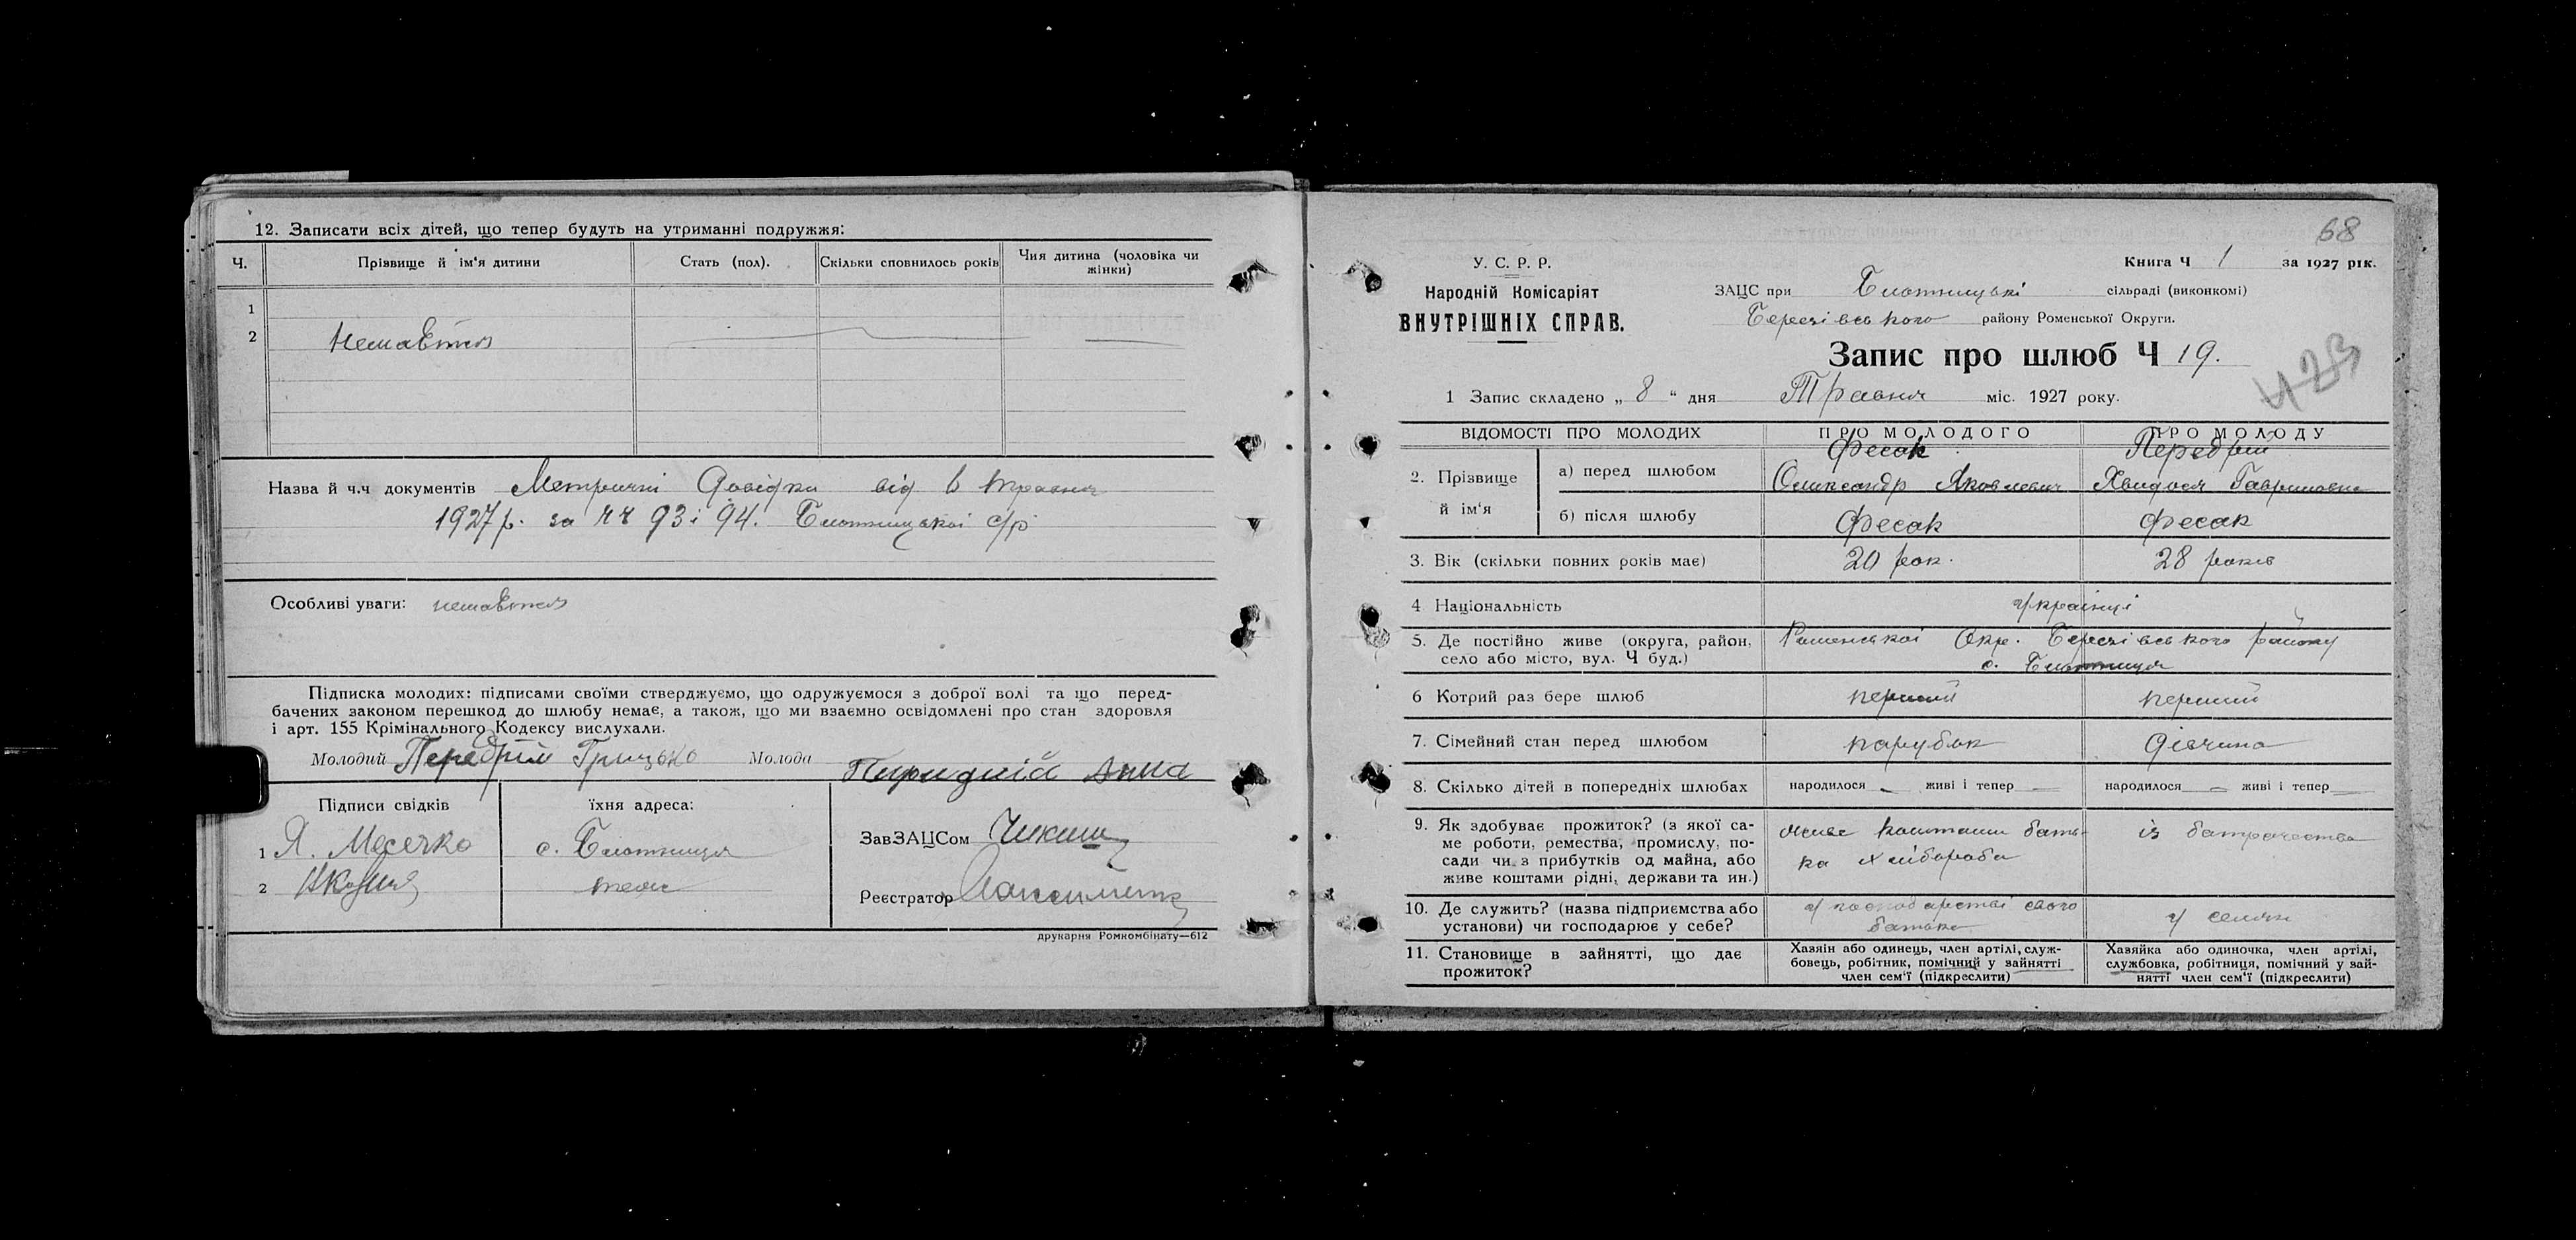 12. Записати всіх дітей, що тепер будуть на утриманні подружжя:
Ч. Прізвище й ім'я дитини Стать (пол). Скільки сповнилось років Чия дитина (чоловіка чи жінки)
1
2 немається
Назва й ч.ч документів Метричні Довідки від 6 травня
1927 р. за чч 93 і 94. Блотницької с/р
Особливі уваги: немається
Підписка молодих: підписами своїми стверджуємо, що одружуємося з доброї волі та що перед-
бачених законом перешкод до шлюбу немає, а також, що ми взаємно освідомлені про стан здоровля
і арт. 155 Крімінального Кодексу вислухали.
Молодий Передрій Грицько Молода Пиридиій Анна
Підписи свідків їхня адреса:
1 Я. Месечко с. Блотниця ЗавЗАЦСом
2 теж Реєстратор
друкарня Ромкомбінату—612
68
У. С. Р. Р. Книга Ч 1 за 1927 рік.
Народній Комісаріят ЗАЦС при Блотницькі сільраді (виконкомі)
ВНУТРІШНІХ СПРАВ. Березівського району Роменської Округи.
Запис про шлюб Ч 19.
423
1 Запис складено „ 8 “ дня Травня міс. 1927 року.
ВІДОМОСТІ ПРО МОЛОДИХ ПРО МОЛОДОГО ПРО МОЛОДУ
2. Прізвище й ім'я а) перед шлюбом Фесак Олександр Яковлевич Передрій Хвидося Гавриловна
б) після шлюбу Фесак Фесак
3. Вік (скільки повних років має) 20 рок. 28 років
4 Національність Українці
5. Де постійно живе (округа, район, Роменської Окр. Березівського району
село або місто, вул. Ч буд.) с. Блотниця
6 Котрий раз бере шлюб перший перший
7. Сімейний стан перед шлюбом парубок дівчина
8. Скілько дітей в попередніх шлюбах народилося — живі і тепер — народилося — живі і тепер —
9. Як здобуває прожиток? (з якої са- живе коштами бать- із батрачества
ме роботи, ремества, промислу, по- ка хлібороба
сади чи з прибутків од майна, або
живе коштами рідні, держави та ин.)
10. Де служить? (назва підприємства або у господарстві свого у селян
установи) чи господарює у себе? батька
11. Становище в зайнятті, що дає прожиток?
Хазяїн або одинець, член артілі, служ-
бовець, робітник, помічний у зайнятті
член сем'ї (підкреслити)
Хазяйка або одиночка, член артілі,
службовка, робітниця, помічний у зай-
нятті член сем'ї (підкреслити)